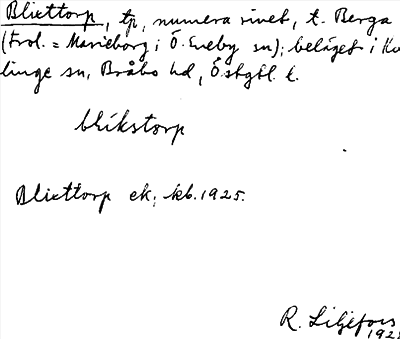 Blixttorp, tp, numera rivet, t. Berga
(trol. = Marieborg i Ö. Eneby sn); beläget i Kv
linge sn, Bråbo hd, Östgtl. l.
blikstorp
Blixttorp ek; kb. 1925.
R. Liljefors
192